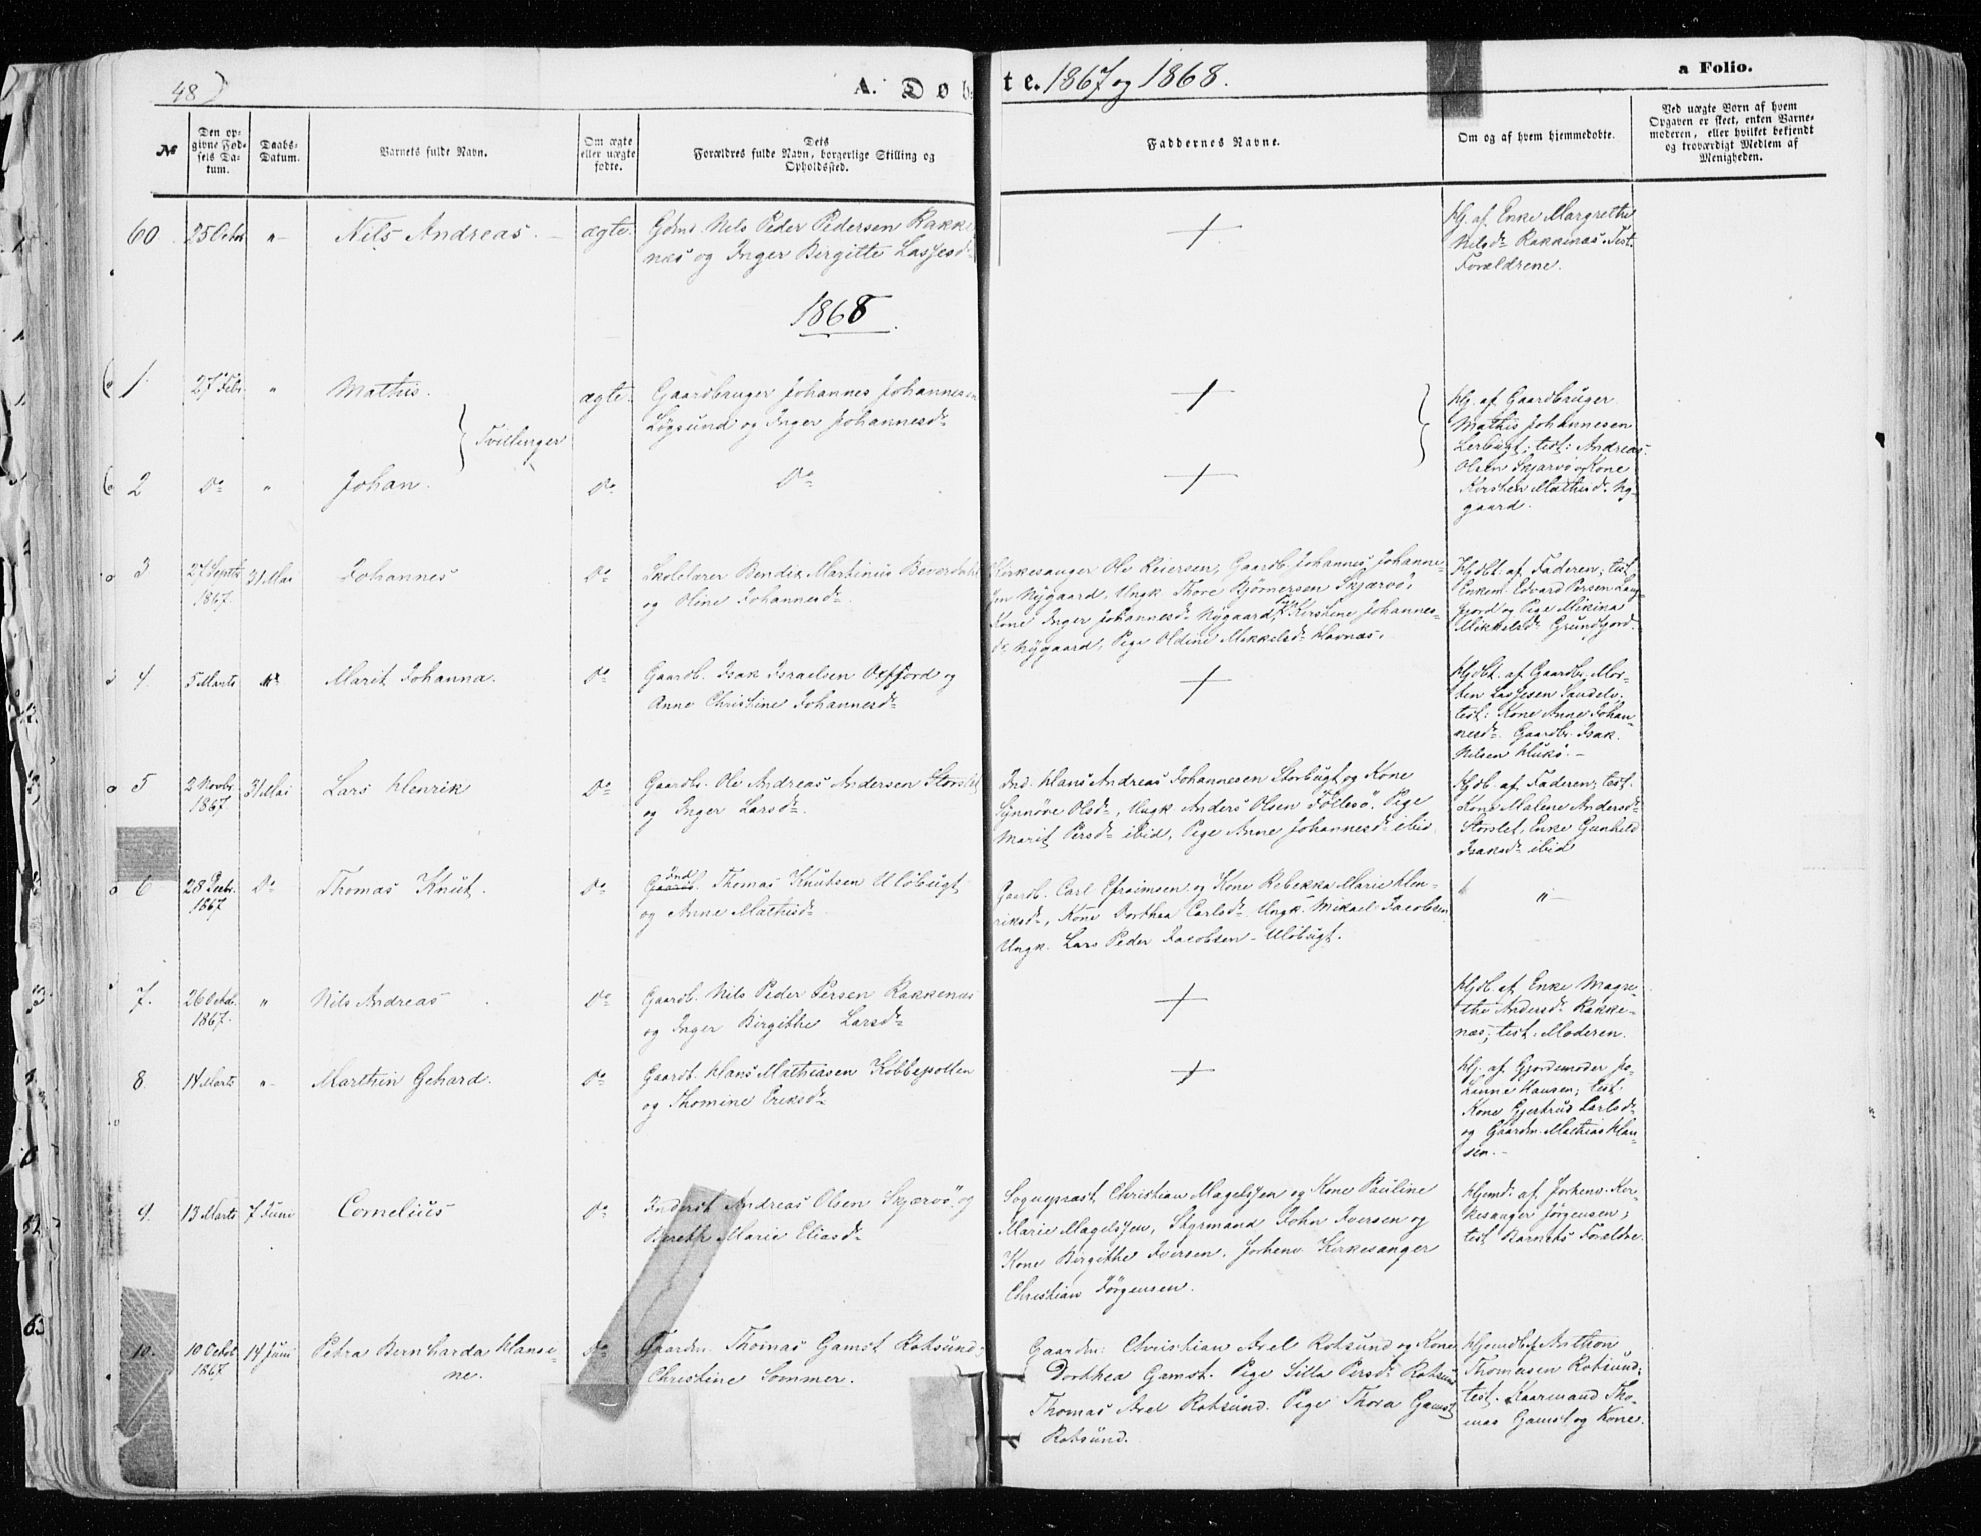 48)
A. Døbte. 1867 og 1868.
a Folio.
No
Den op-
givne Fød-
sels Da-
tum.
Daabs-
Datum.
Barnets fulde Navn.
Om ægte
eller uægte
fødte.
Dets
Forældres fulde Navn, borgerlige Stilling og
Opholdssted.
Faddernes Navne.
Om og af hvem hjemmedøbte.
Ved uægte Børn af hvem
Opgaven er skeet, enten Barne-
moderen, eller hvilket bekjendt
og troværdigt Medlem af
Menigheden.
60. 25 Octbr " Nils Andreas. ægte. Gdmd. Nils Peder Pedersen Rakke-
næs og Inger Birgitte Lassesdr
Hj. af Enke Margrethe
Nilsdr Rakkenæs. Test.
Forældrene.
1868.
1. 27 Febr. " Mathis. ægte. Gaardbruger Johannes Johannesen
Løgsund og Inger Johannesdr
Tvillinger
Hj. af Gaardbruger
Mathis Johannesen
Lerbugt; test: Andreas
Olsen Skjærvø og Kone
Kirsten Mathisdr Ny-
gaard.
2 Do " Johan. Do Do
3 27 Septbr 31 Mai Johannes Do Skolelærer Bendix Martinus Beverdahl
1867. og Oline Johannesdr
Kirkesanger Ole Reiersen, Gaardb. Johannes Johanne-
sen Nygaard, Ungk. Thore Bjørnersen Skjærvø,
Kone Inger Johannesdr Nygaard, Kirstine Johannes-
dr Nygaard, Pige Oldine Mikkelsdr Havnæs.
Hjdbt. af Faderen; test.
Enkem. Edvard Persen Lang-
fjord og Pige Mikina
Mikkelsdr Grundfjord.
4. 5 Marts " Marit Johanna. Do Gaardb. Isak Israelsen Oxfjord og
Anne Christine Johannesdr
Hjdbt. af Gaardbr. Mor-
ten Lassesen Sandelv.
test: Kone Anne Johan-
nesdr Gaardbr. Isak
Nilsen Hukø. -
5 2 Novbr. 31 Mai Lars Henrik Do Gaardbr. Ole Andreas Andersen Storslet
1867. og Inger Larsdr.
Ind. Hans Andreas Johannesen Storbugt og Kone
Synnøve Olsdr, Ungk Anders Olsen Føllesø. Pige
Marit Persdr ibid, Pige Anne Johannesdr ibid.
Hjdb. af Faderen; test.
Kone Malene Andersdr
Storslet, Enke Gunhild
Isaksdr ibid
6 28 Decbr. Do Thomas Knut. Do Ind. Thomas Knutsen Uløbugt
1867 og Anne Mathisdr
Gaardb. Carl Efraimsen og Kone Rebekka Marie Hen-
riksdr, Kone Dorthea Carlsdr Ungk. Mikael Jacobsen
Ungk. Lars Peder Jacobsen - Uløbugt.
"
7. 26 Octbr. " Nils Andreas Do Gaardb. Nils Peder Persen Rakkenæs
1867. og Inger Birgithe Larsdr
Hjdb. af Enke Magre-
the Andersdr Rakke-
næs; test. Moderen.
8. 14 Marts " Marthin Gehard. Do Gaardb. Hans Mathiasen Kobbepollen
og Thomine Eriksdr
Hj. af Gjordemoder Jo-
hanne Hansen; test.
Kone Gjertrud Carlsdr
og Gaardm. Mathias Han-
sen. -
9. 13 Marts 7 Juni Cornelius Do Inderst Andreas Olsen Skjærvø og
Bereth Marie Eliasdr
Sogneprest Christian Magelssen og Kone Pauline
Marie Magelssen, Styrmand John Iversen og
Kone Birgithe Iversen. Forhenv. Kirkesanger
Christian Jørgensen.
Hjemd. af Forhenv. Kir-
kesanger Jørgensen;
test Barnets Forældre.
10. 10 Octbr 14 Juni Petra Bernharda Hansi- Do Gaardm. Thomas Gamst Rotsund;
1867 ne. Christine Sommer.
Gaardm: Christian Axel Rotsund og Kone
Dorthea Gamst. Pige Silla Persdr Rotsund
Thomas Axel Rotsund. Pige Thora Gamst
Rotsund.
Hjemdb af Anthon
Thomasen Rotsund;
test. Kaarmand Tho-
mas Gamst og Kone.